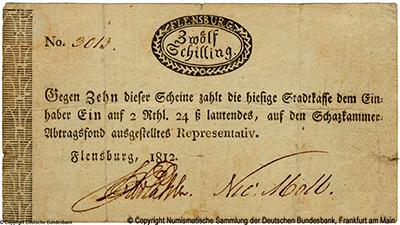 FLENSBURG
No. 3013.
Zwölf
Schilling.
Gegen Zehn dieser Scheine zahlt die hiesige Stadtkasse dem Ein-
haber Ein auf 2 Rthl. 24 ß lautendes, auf den Schazkammer-
Abtragsfond ausgestelltes Representativ.
Flensburg, 1812.
Nic: Moll.
© Copyright Deutsche Bundesbank
© Copyright Numismatische Sammlung der Deutschen Bundesbank, Frankfurt am Main